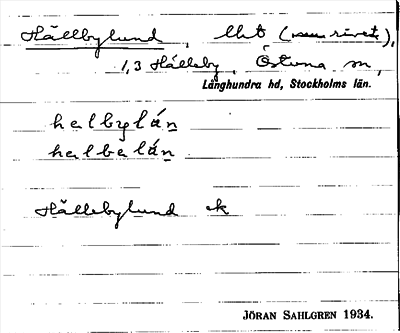 Hällbylund, lht (numrivet),
1,3 Hälleby, Östuna sn,
Långhundra hd, Stockholms län.
helbylán
helbelán
Hällebylund ek
JÖRAN SAHLGREN 1934.